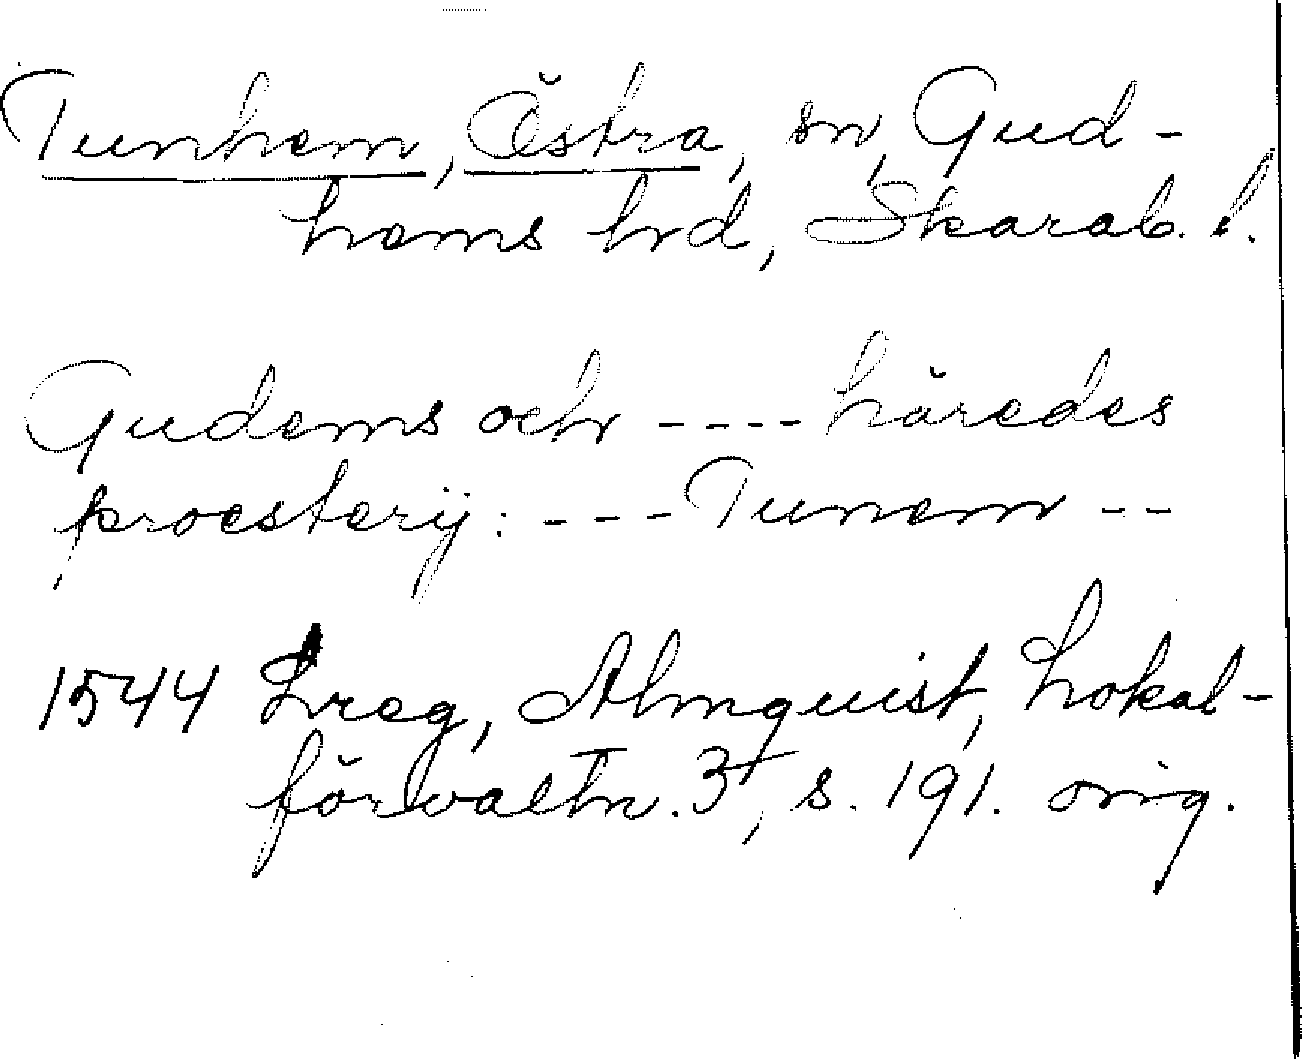 Tunhem, Östra, sn, Gud-
hems hrd, Skarab. l.
Gudems och ---- häredes
proesterij: --- Tunem --
1544 Lreg, Almquist, Lokal-
förvaltn. 3, s. 191. orig.